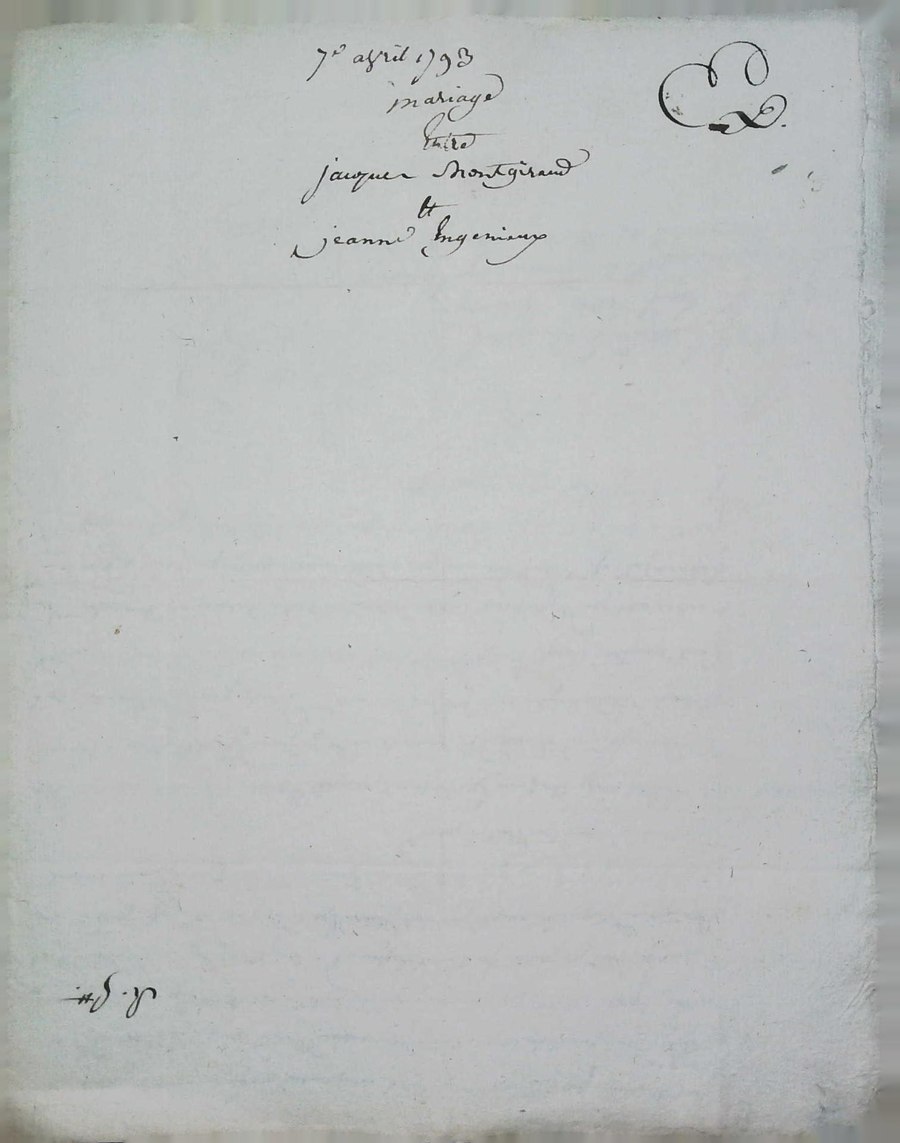 7e avril 1793
mariage
Entre
jacques Montgiraud
Et
jeanne Ingenieux